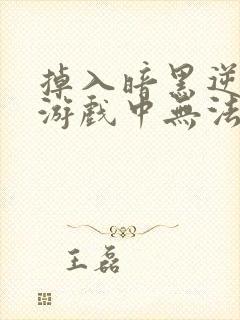 掉入暗黑逆
游戲中無法
王磊